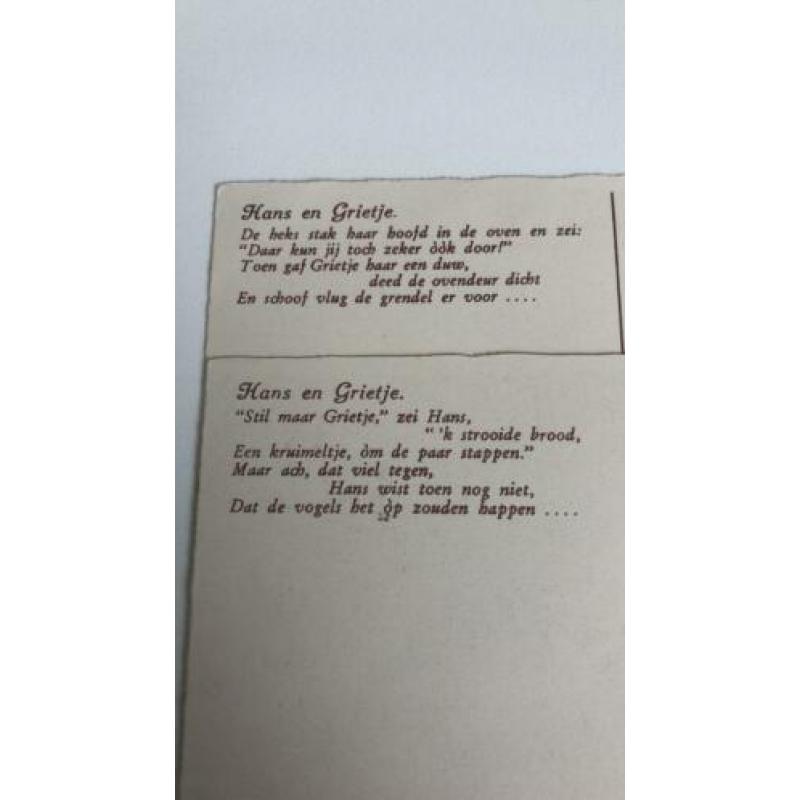 Hans en Grietje.
De heks stak haar hoofd in de oven en zei:
"Daar kun jij toch zeker òòk door!"
Toen gaf Grietje haar een duw,
deed de ovendeur dicht
En schoof vlug de grendel er voor ....
Hans en Grietje.
"Stil maar Grietje," zei Hans,
" 'k strooide brood,
Een kruimeltje, òm de paar stappen."
Maar ach, dat viel tegen,
Hans wist toen nog niet,
Dat de vogels het òp zouden happen ....